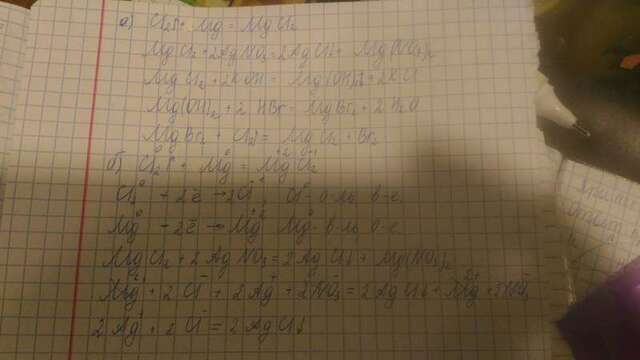 а) Cl₂↑ + Mg = MgCl₂
MgCl₂ + 2AgNO₃ = 2AgCl↓ + Mg(NO₃)₂
MgCl₂ + 2KOH = Mg(OH)₂↓ + 2KCl
Mg(OH)₂ + 2HBr = MgBr₂ + 2H₂O
MgBr₂ + Cl₂↑ = MgCl₂ + Br₂
б) Cl₂⁰↑ + Mg⁰ = Mg⁺²Cl₂⁻¹
Cl₂⁰ - 2ē → 2Cl⁻ Cl⁰ - о-ль в-е
Mg⁰ - 2ē → Mg⁺² Mg⁰ - в-ль о-е
MgCl₂ + 2AgNO₃ = 2AgCl↓ + Mg(NO₃)₂
Mg²⁺ + 2Cl⁻ + 2Ag⁺ + 2NO₃⁻ = 2AgCl↓ + Mg²⁺ + 2NO₃⁻
2Ag⁺ + 2Cl⁻ = 2AgCl↓